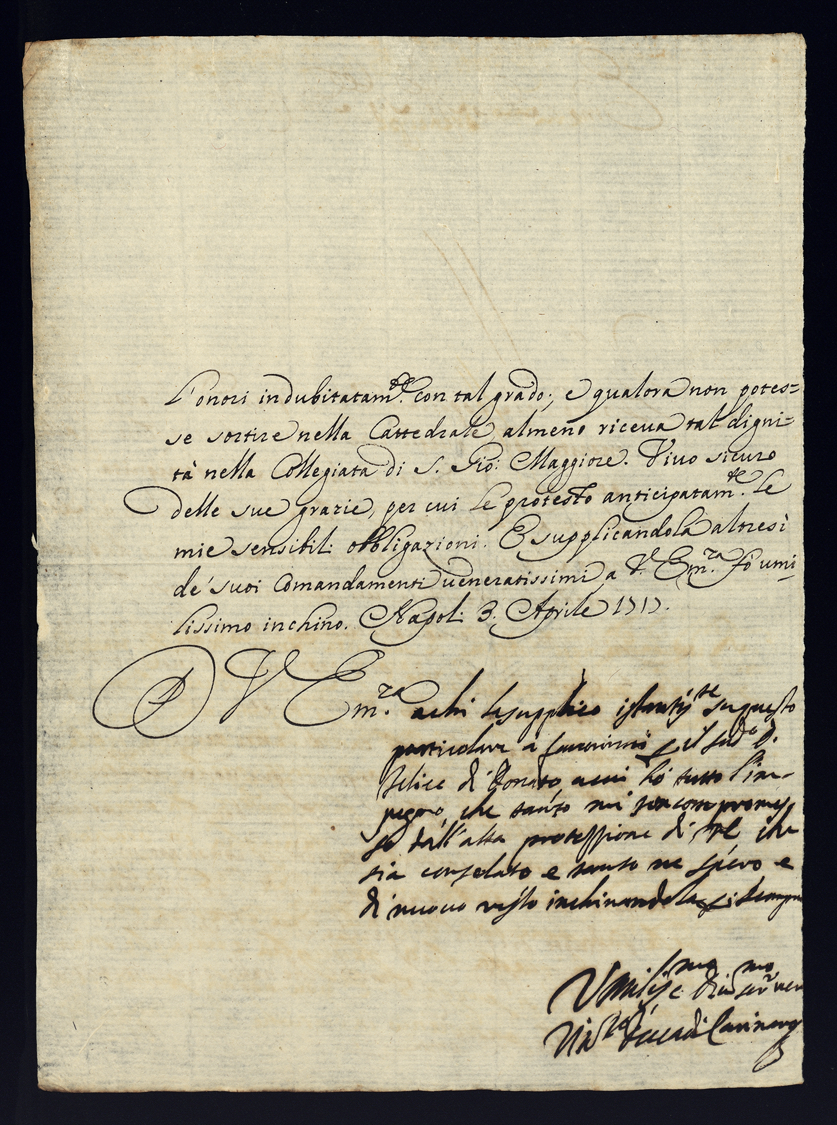 l'onori indubitatam.te con tal grado; e qualora non potes=
se sortire nella Cattedrale almeno riceva tal digni=
tà nella Collegiata di S. Gio: Maggiore. Vivo sicuro
delle sue grazie, per cui le protesto anticipatam.te le
mie sensibili obbligazioni. E supplicandola altresì
de' suoi Comandamenti veneratissimi a V. Em.za fò umi=
lissimo inchino. Napoli 3. Aprile 1717.
D V Em.za a chi lo supplico
particolare a favorirmi il sud.o D.
Felice di Donato, a cui hò tutto l'im-
pegno, che tanto mi son compromes
so dall'alta protezzione di VE che
sia consolato e tanto ne spero e
di nuovo resto inchinandola